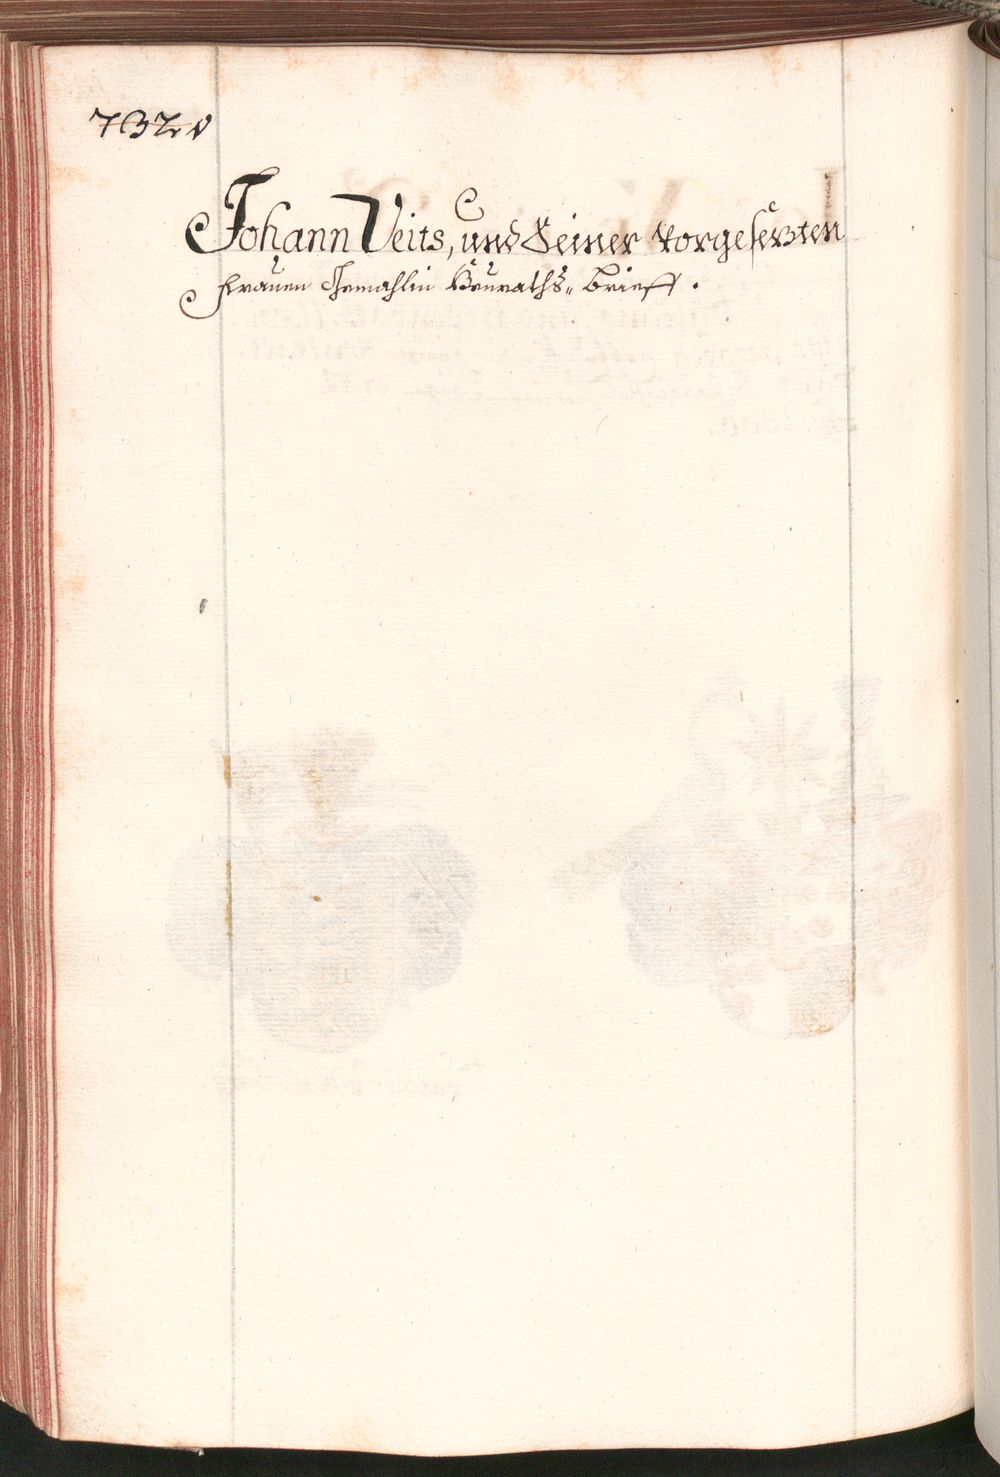 732v
Johann Veits, und Seiner vorgesetzten
Frauen Gemahlin Heuraths= Brieff.